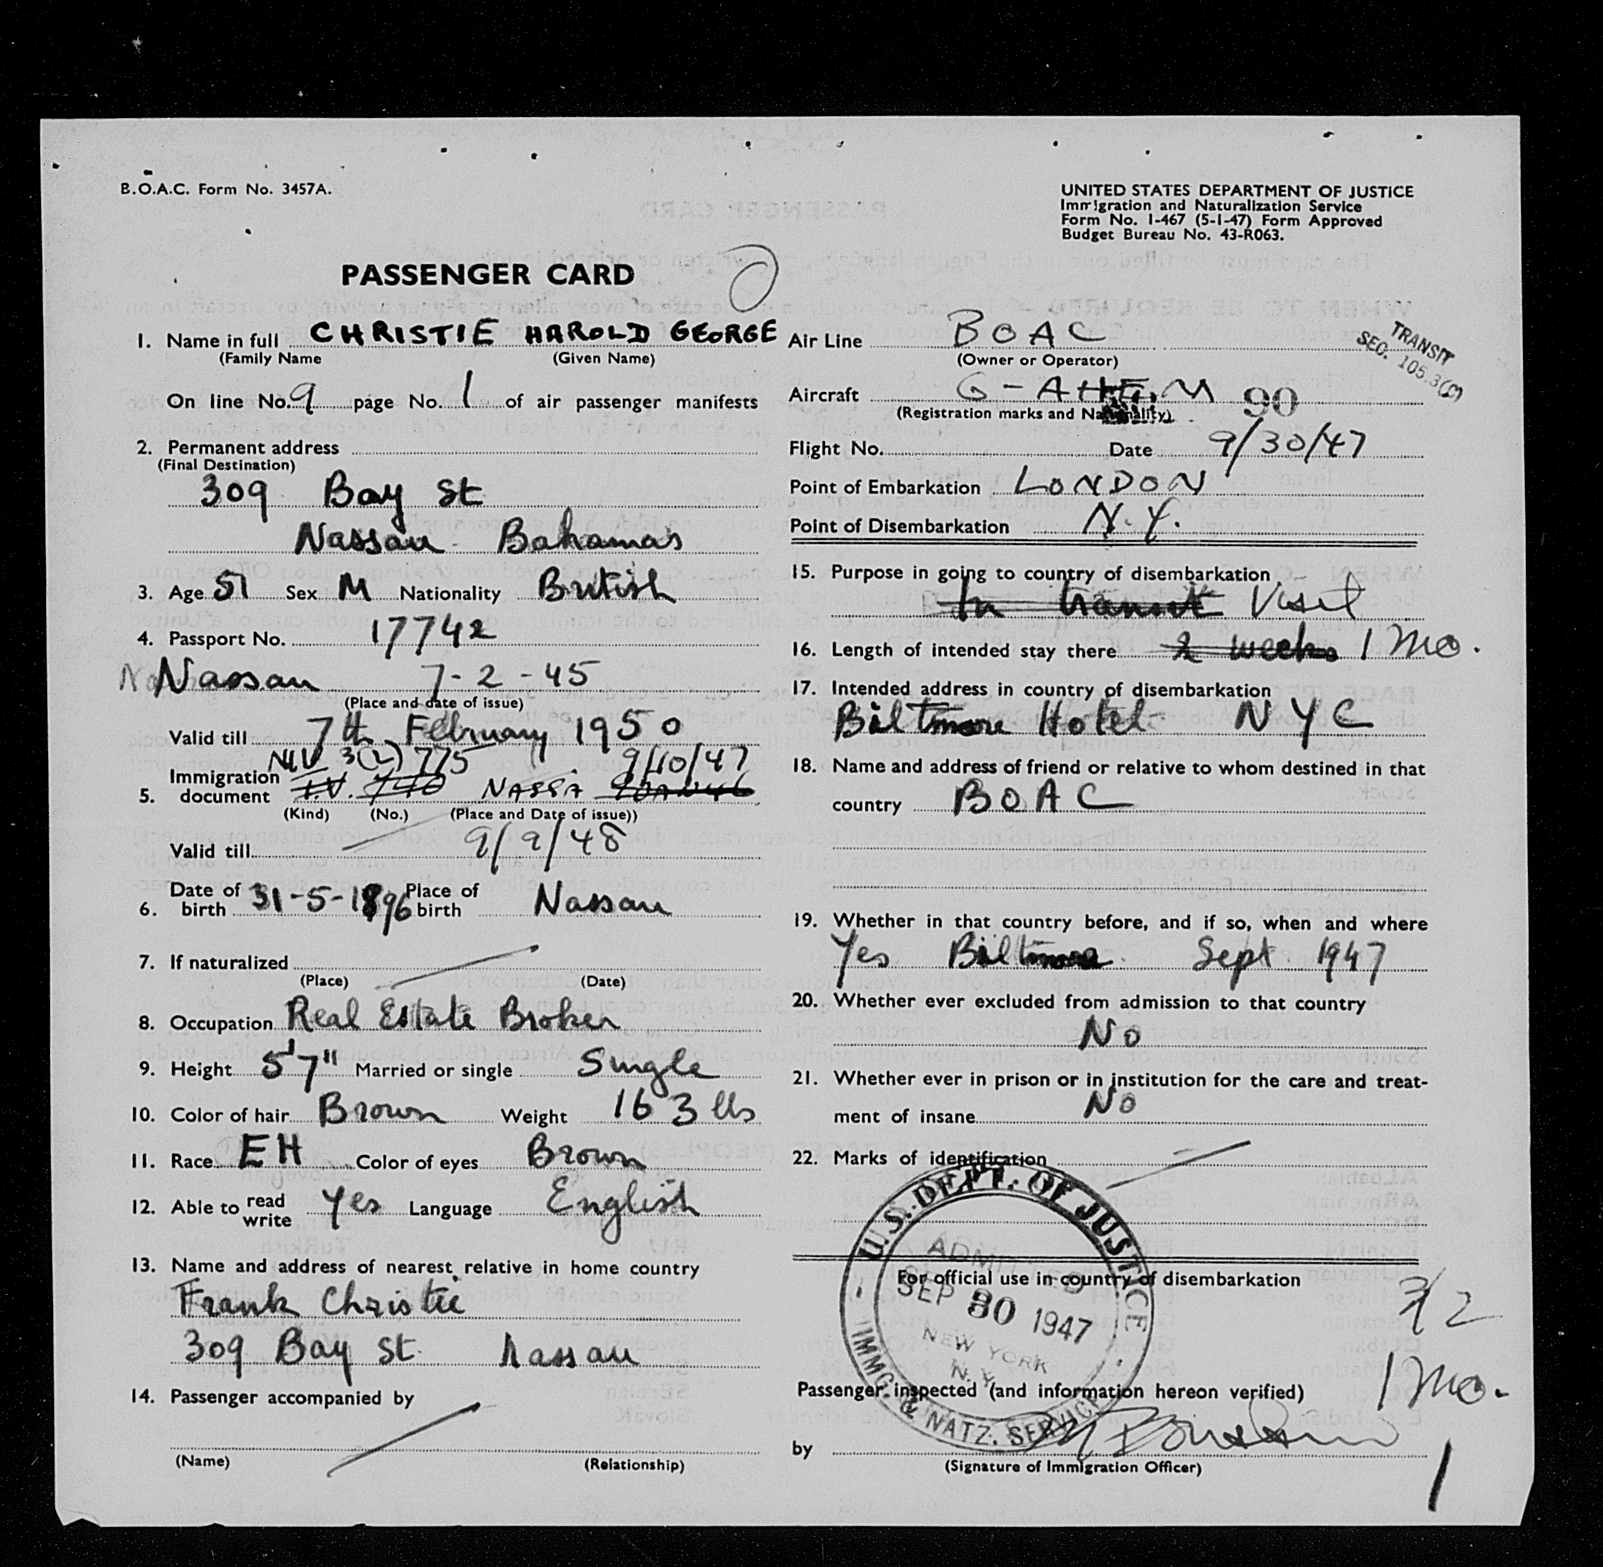 B.O.A.C. Form No. 3457A.
UNITED STATES DEPARTMENT OF JUSTICE
Immigration and Naturalization Service
Form No. I-467 (5-1-47) Form Approved
Budget Bureau No. 43-R063.
PASSENGER CARD
1. Name in full CHRISTIE HAROLD GEORGE
(Family Name (Given Name)
On line No. 9 page No. 1 of air passenger manifests
2. Permanent address
(Final Destination)
309 Bay St
Nassau Bahamas
3. Age 51 Sex M Nationality British
4. Passport No. 17742
Nassau 7-2-45
(Place and date of issue)
Valid till 7th February 1950
NIV 3(2) 775 9/10/47
5. Immigration document NASSA
(Kind) (No.) (Place and Date of issue))
Valid till 9/9/48
6. Date of birth 31-5-1896 Place of birth Nassau
7. If naturalized
(Place) (Date)
8. Occupation Real Estate Broker
9. Height 5'7" Married or single Single
10. Color of hair Brown Weight 163 lbs
11. Race EH Color of eyes Brown
12. Able to read write Yes Language English
13. Name and address of nearest relative in home country
Frank Christie
309 Bay St Nassau
14. Passenger accompanied by
(Name) (Relationship)
Air Line BOAC
(Owner or Operator)
TRANSIT
SEC. 105.3(
Aircraft G-AHEM 90
(Registration marks and Nationality)
Flight No. Date 9/30/47
Point of Embarkation LONDON
Point of Disembarkation N.Y.
15. Purpose in going to country of disembarkation
In transit Visit
16. Length of intended stay there 2 weeks 1 Mo.
17. Intended address in country of disembarkation
Biltmore Hotel NYC
18. Name and address of friend or relative to whom destined in that
country BOAC
19. Whether in that country before, and if so, when and where
Yes Biltmore Sept 1947
20. Whether ever excluded from admission to that country
No
21. Whether ever in prison or in institution for the care and treat-
ment of insane No
22. Marks of identification
U.S. DEPT. OF JUSTICE
ADMITTED
For official use in country of disembarkation
SEP 30 1947
NEW YORK
N.Y.
IMMG. & NATZ. SERVICE
3/2
1 Mo.
Passenger inspected (and information hereon verified)
by
(Signature of Immigration Officer)
1